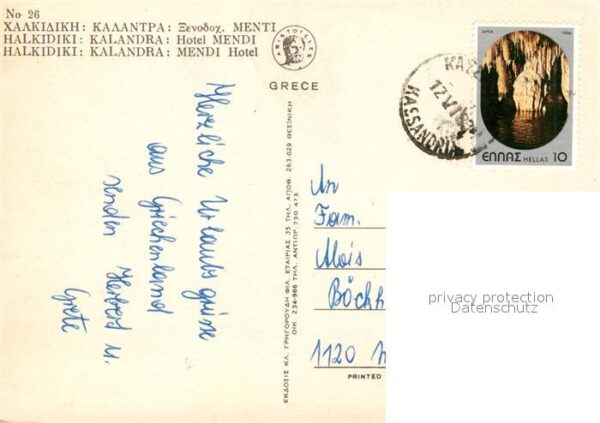 No 26
ΧΑΛΚΙΔΙΚΗ: ΚΑΛΑΝΤΡΑ: Ξενοδοχ. ΜΕΝΤΙ
HALKIDIKI: KALANDRA: Hotel MENDI
HALKIDIKI: KALANDRA: MENDI Hotel
ARISTOTELES
GREECE
ΕΛΛΑΣ HELLAS 10
1980
KASSANDRIA
Herzliche Urlaubsgrüsse
aus Griechenland
senden Herbert u.
Grete
ΕΚΔΟΣΙΣ ΚΛ. ΓΡΗΓΟΡΟΥΔΗ ΦΙΛ. ΕΤΑΙΡΙΑΣ 35 ΤΗΛ. ΑΠΟΘ. 263.029 ΘΕΣ/ΝΙΚΗ
ΟΙΚ. 234-966 ΤΗΛ. ΑΝΤΙΠΡ. 730 473
An
Fam.
Alois
Böckh
1120
PRINTED
privacy protection
Datenschutz